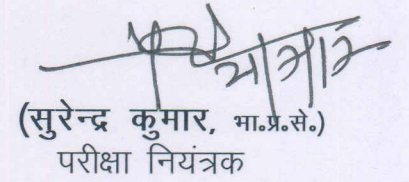 (सुरेन्द्र कुमार, भा.प्र.से.)
परीक्षा नियंत्रक